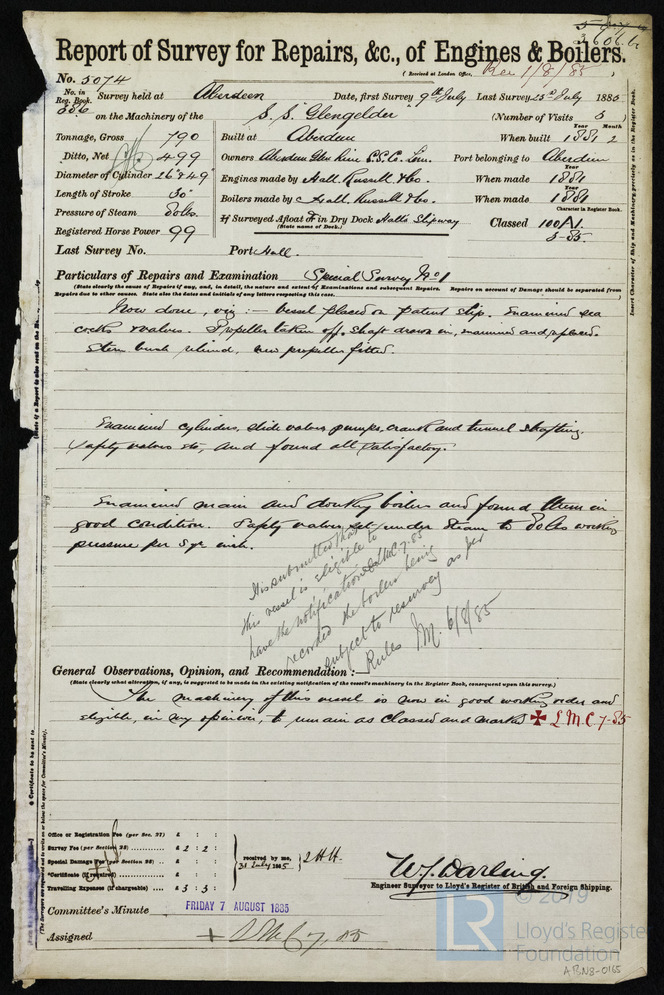 Report of Survey for Repairs, &c., of Engines & Boilers.
(Received at London Office, Rec 1/8/85)
No. 5074
No. in Reg. Book.
556
Survey held at Aberdeen Date, first Survey 9th July Last Survey 25th July 1885
on the Machinery of the S.S. "Glengelder" (Number of Visits 5)
Tonnage, Gross 790 Built at Aberdeen When built 1881 2
Ditto, Net 499 Owners Aberdeen Glen Line S.S. Co. Lim. Port belonging to Aberdeen
Diameter of Cylinder 26" & 49" Engines made by Hall, Russell & Co. When made 1881
Length of Stroke 30" Boilers made by Hall, Russell & Co. When made 1881
Pressure of Steam 80lbs. If Surveyed Afloat or in Dry Dock Halls Slipway Classed 100A1.
(State name of Dock.)
Character in Register Book.
5-85.
Registered Horse Power 99
Last Survey No. Port Hall.
Particulars of Repairs and Examination Special Survey No 1
(State clearly the cause of Repairs if any, and, in detail, the nature and extent of Examinations and subsequent Repairs. Repairs on account of Damage should be separated from
Repairs due to other causes. State also the dates and initials of any letters respecting this case.)
Now done, viz:- vessel placed on patent slip. Examined sea
cocks & valves. Propeller taken off. Shaft drawn in, examined and replaced.
Stern bush relined, new propeller fitted.
Examined cylinders, slide valves, pumps, crank and tunnel shafting,
safety valves etc, and found all satisfactory.
Examined main and donkey boilers and found them in
good condition. Safety valves set under steam to 80lbs working
pressure per sqre inch.
It is submitted that
this vessel is eligible to
have the notification LMC 7.85
recorded the boilers being
subject to resurvey as per
Rules
6/8/85
General Observations, Opinion, and Recommendation:—
(State clearly what alteration, if any, is suggested to be made in the existing notification of the vessel's machinery in the Register Book, consequent upon this survey.)
The machinery of this vessel is now in good working order and
eligible, in my opinion, to remain as classed and marked ✠ LMC 7-85
Office or Registration Fee (per Sec. 27) £ : :
Survey Fee (per Section 28) £ 2 : 2 :
Special Damage Fee (per Section 28) £ : :
*Certificate (if required) £ : :
Travelling Expenses (if chargeable) £ 5 : 5 :
received by me,
31 July 1885
W.J. Darling.
Engineer Surveyor to Lloyd's Register of British and Foreign Shipping.
Committee's Minute FRIDAY 7 AUGUST 1885
Assigned + LMC 7, 85
Insert Character of Ship and Machinery precisely as in the Register Book.
© 2019
LR
Lloyd's Register
Foundation
ABN3-0165